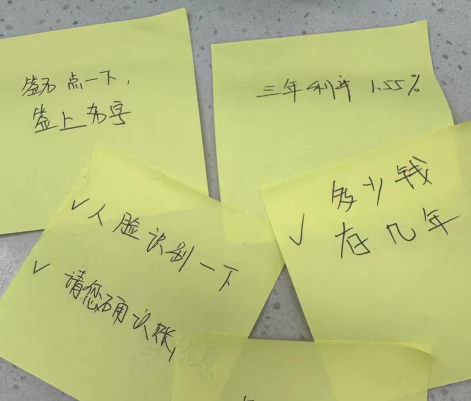 签名点一下,
签上名字
三年利率 1.55%
✓人脸识别一下
✓请您确认账
✓多少钱
存几年